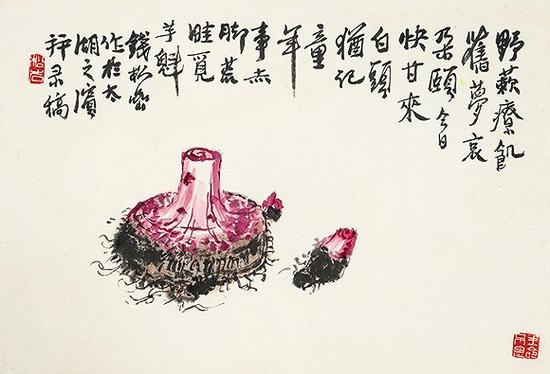 野蔌療飢
舊夢哀
朵頤今日
快甘來
白頭
猶記
童
年
事赤
脚荒
畦覓
芋魁
錢松嵒
作於太
湖之濱
并录稿